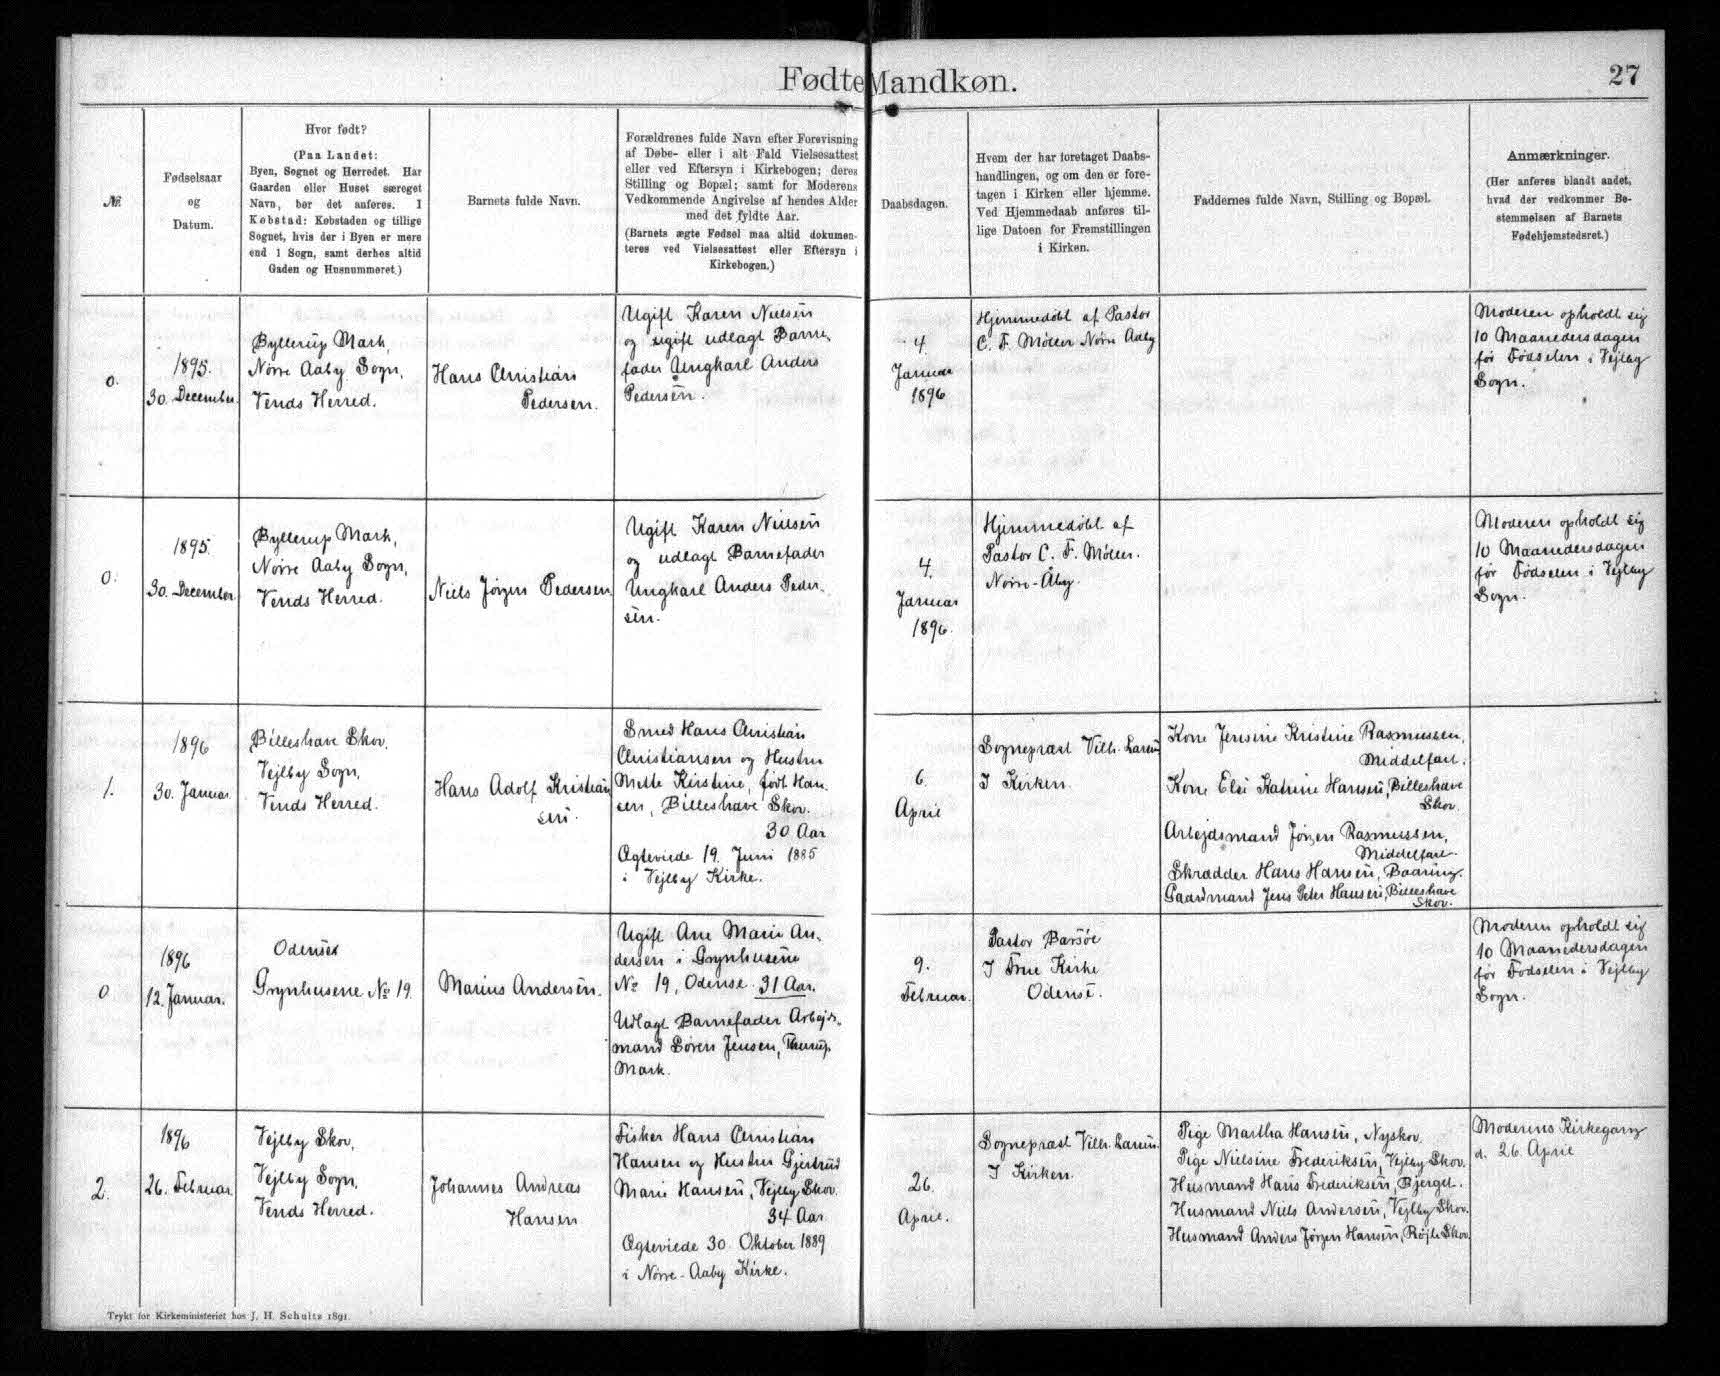 Fødte Mandkøn.
27
№
Fødselsaar
og
Datum.
Hvor født?
(Paa Landet:
Byen, Sognet og Herredet. Har
Gaarden eller Huset særeget
Navn, bør det anføres. I
Købstad: Købstaden og tillige
Sognet, hvis der i Byen er mere
end 1 Sogn, samt derhos altid
Gaden og Husnummeret.)
Barnets fulde Navn.
Forældrenes fulde Navn efter Forevisning
af Døbe- eller i alt Fald Vielsesattest
eller ved Eftersyn i Kirkebogen; deres
Stilling og Bopæl; samt for Moderens
Vedkommende Angivelse af hendes Alder
med det fyldte Aar.
(Barnets ægte Fødsel maa altid dokumen-
teres ved Vielsesattest eller Eftersyn i
Kirkebogen.)
Daabsdagen.
Hvem der har foretaget Daabs-
handlingen, og om den er fore-
tagen i Kirken eller hjemme.
Ved Hjemmedaab anføres til-
lige Datoen for Fremstillingen
i Kirken.
Faddernes fulde Navn, Stilling og Bopæl.
Anmærkninger.
(Her anføres blandt andet,
hvad der vedkommer Be-
stemmelsen af Barnets
Fødehjemstedsret.)
0.
1895.
30. December.
Byllerup Mark,
Nørre Aaby Sogn,
Vends Herred.
Hans Christian
Pedersen.
Ugift Karen Nielsen
og ugift udlagt Barne-
fader Ungkarl Anders
Pedersen.
4.
Januar
1896
Hjemmedøbt af Pastor
C. F. Møller Nørre Aaby
Moderen opholdt sig
10 Maanedersdagen
før Fødselen i Vejlby
Sogn.
0.
1895.
30. December.
Byllerup Mark,
Nørre Aaby Sogn,
Vends Herred.
Niels Jørgen Pedersen.
Ugift Karen Nielsen
og udlagt Barnefader
Ungkarl Anders Peder-
sen.
4.
Januar
1896.
Hjemmedøbt af
Pastor C. F. Møller.
Nørre-Åby.
Moderen opholdt sig
10 Maanedersdagen
før Fødselen i Vejlby
Sogn.
1.
1896
30. Januar.
Billeshave Skov.
Vejlby Sogn,
Vends Herred.
Hans Adolf Kristian
sen.
Smed Hans Christian
Christiansen og Hustru
Mette Kirstine, født Han-
sen, Billeshave Skov.
30 Aar
Ægteviede 19. Juni 1885
i Vejlby Kirke.
6.
April
Sognepræst Vilh. Larsen
I Kirken.
Kone Jensine Kristine Rasmussen,
Middelfart.
Kone Else Katrine Hansen, Billeshave
Skov.
Arbejdsmand Jørgen Rasmussen,
Middelfart.
Skrædder Hans Hansen, Baaring.
Gaardmand Jens Peter Hansen, Billeshave
Skov.
0
1896
12. Januar.
Odense
Grynhusene № 19.
Marius Andersen.
Ugift Ane Marie An-
dersen i Grynhusene
№ 19, Odense. 31 Aar.
Udlagt Barnefader Arbejds-
mand Søren Jensen,
Mark.
9.
Februar.
Pastor Barsøe
I Frue Kirke
Odense.
Moderen opholdt sig
10 Maanedersdagen
før Fødselen i Vejlby
Sogn.
2.
1896
26. Februar.
Vejlby Skov,
Vejlby Sogn,
Vends Herred.
Johannes Andreas
Hansen
Fisker Hans Christian
Hansen og Hustru Gjertrud
Marie Hansen, Vejlby Skov.
34 Aar
Ægteviede 30. Oktober 1889
i Nørre-Aaby Kirke.
26.
April.
Sognepræst Vilh. Larsen.
I Kirken.
Pige Martha Hansen, Nyskov.
Pige Nielsine Frederiksen, Vejlby Skov.
Husmand Hans Frederiksen, Bjerget.
Husmand Niels Andersen, Vejlby Skov.
Husmand Anders Jørgen Hansen, Røjle Skov.
Moderens Kirkegang
d. 26. April
Trykt for Kirkeministeriet hos J. H. Schultz 1891.